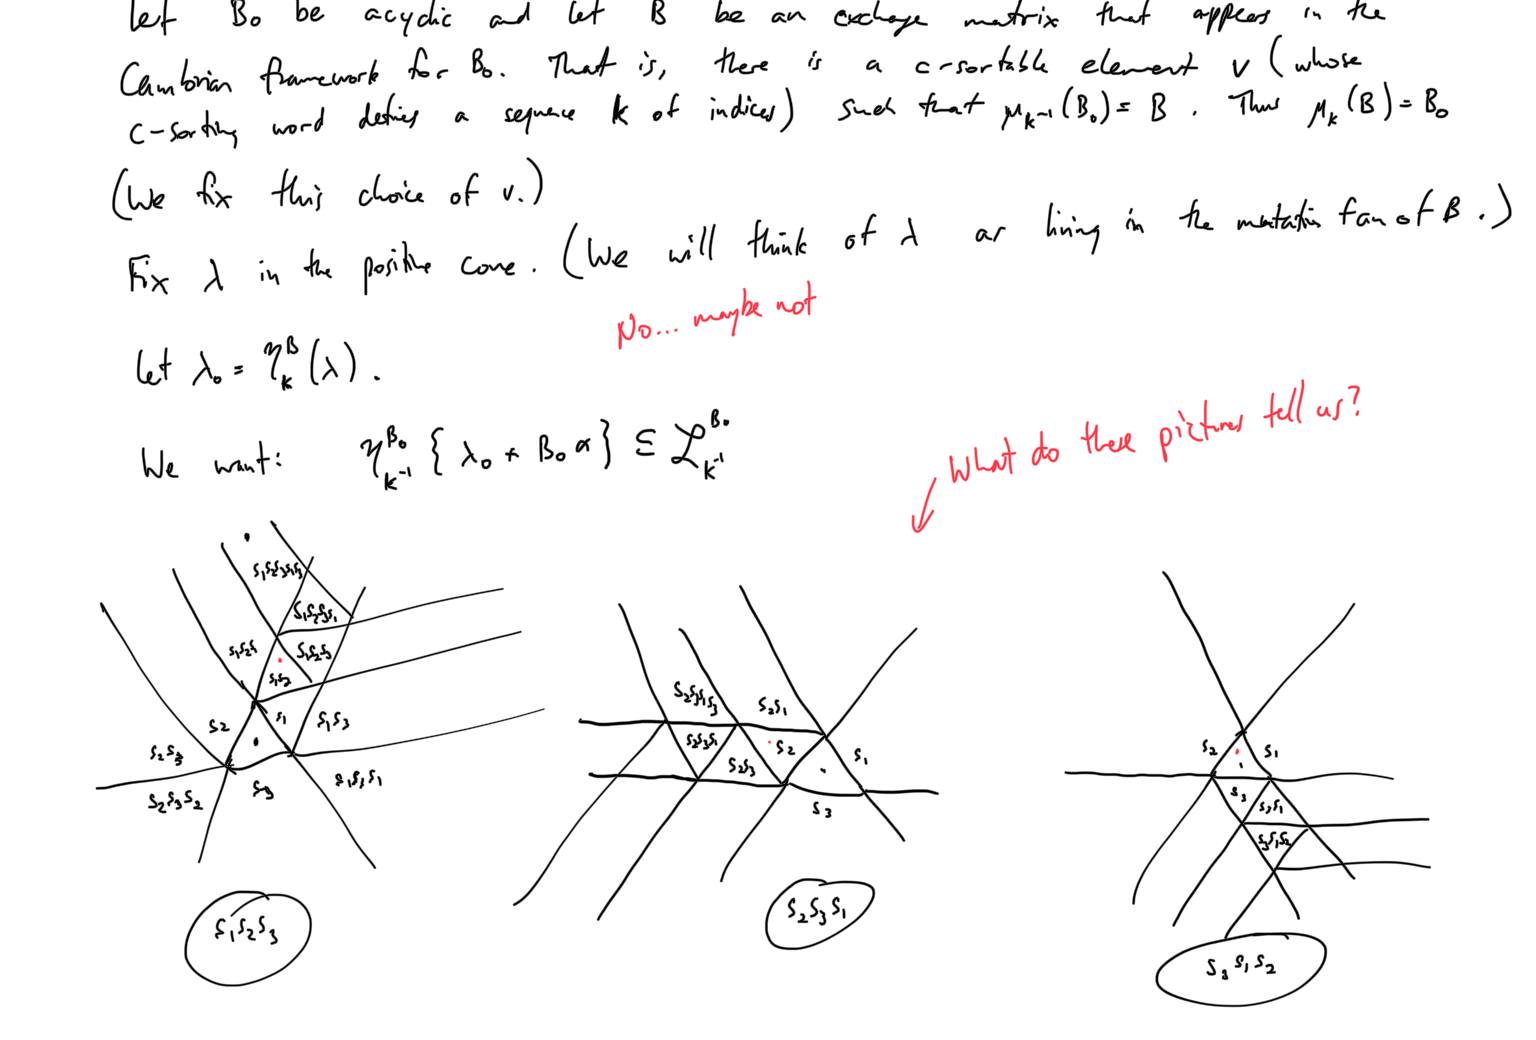 let B₀ be acyclic and let B be an exchange matrix that appears in the
Cambrian framework for B₀. That is, there is a c-sortable element v (whose
c-sorting word defines a sequence k of indices) such that μ_{k⁻¹}(B₀) = B. Thus μ_k(B) = B₀
(We fix this choice of v.)
Fix λ in the positive cone. (We will think of λ as living in the mutation fan of B.)
No... maybe not
Let λ₀ = η_k^B(λ).
What do these pictures tell us?
We want: η_{k⁻¹}^{B₀} { λ₀ + B₀α } ⊆ 𝓛_{k⁻¹}^{B₀}
s₁s₂s₃s₁s₃
s₁s₂s₃s₁
s₁s₂s₁
s₁s₂s₃
s₁s₂
s₂
s₁
s₁s₃
s₂s₃
s₂s₃s₂
s₃
s₁s₃s₁
s₁s₂s₃
s₂s₃s₁s₃
s₂s₁
s₂s₃s₁
s₂s₃
s₂
s₁
s₃
s₂s₃s₁
s₂
s₁
s₃
s₃s₁
s₃s₁s₂
s₃s₁s₂